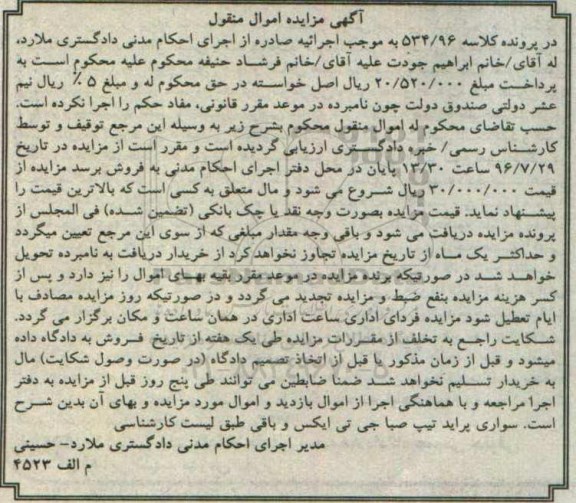 آگهی مزایده اموال منقول
در پرونده کلاسه ۵۳۴/۹۶ به موجب اجرائیه صادره از اجرای احکام مدنی دادگستری ملارد،
له آقای/خانم ابراهیم جودت علیه آقای/خانم فرشاد حنیفه محکوم علیه محکوم است به
پرداخت مبلغ ۲۰/۵۲۰/۰۰۰ ریال اصل خواسته در حق محکوم له و مبلغ ۵ ٪ ریال نیم
عشر دولتی صندوق دولت چون نامبرده در موعد مقرر قانونی، مفاد حکم را اجرا نکرده است.
حسب تقاضای محکوم له اموال منقول محکوم بشرح زیر به وسیله این مرجع توقیف و توسط
کارشناس رسمی/ خبره دادگستری ارزیابی گردیده است و مقرر است از مزایده در تاریخ
۹۶/۷/۲۹ ساعت ۱۲/۳۰ پایان در محل دفتر اجرای احکام مدنی به فروش برسد مزایده از
قیمت ۳۰/۰۰۰/۰۰۰ ریال شروع می شود و مال متعلق به کسی است که بالاترین قیمت را
پیشنهاد نماید. قیمت مزایده بصورت وجه نقد یا چک بانکی (تضمین شده) فی المجلس از
پرونده مزایده دریافت می شود و باقی وجه مقدار مبلغی که از سوی این مرجع تعیین میگردد
و حداکثر یک ماه از تاریخ مزایده تجاوز نخواهد کرد از خریدار دریافت به نامبرده تحویل
خواهد شد در صورتیکه برنده مزایده در موعد مقرر بقیه بهای اموال را نیز دارد و پس از
کسر هزینه مزایده بنفع ضبط و مزایده تجدید می گردد و در صورتیکه روز مزایده مصادف با
ایام تعطیل شود مزایده فردای اداری ساعت اداری در همان ساعت و مکان برگزار می گردد.
شکایت راجع به تخلف از مقررات مزایده طی یک هفته از تاریخ فروش به دادگاه داده
میشود و قبل از زمان مذکور یا قبل از اتخاذ تصمیم دادگاه (در صورت وصول شکایت) مال
به خریدار تسلیم نخواهد شد ضمنا ضابطین می توانند طی پنج روز قبل از مزایده به دفتر
اجرا مراجعه و با هماهنگی اجرا از اموال بازدید و اموال مورد مزایده و بهای آن بدین شرح
است. سواری پراید تیپ صبا جی تی ایکس و باقی طبق لیست کارشناسی
مدیر اجرای احکام مدنی دادگستری ملارد- حسینی
م الف ۴۵۲۳